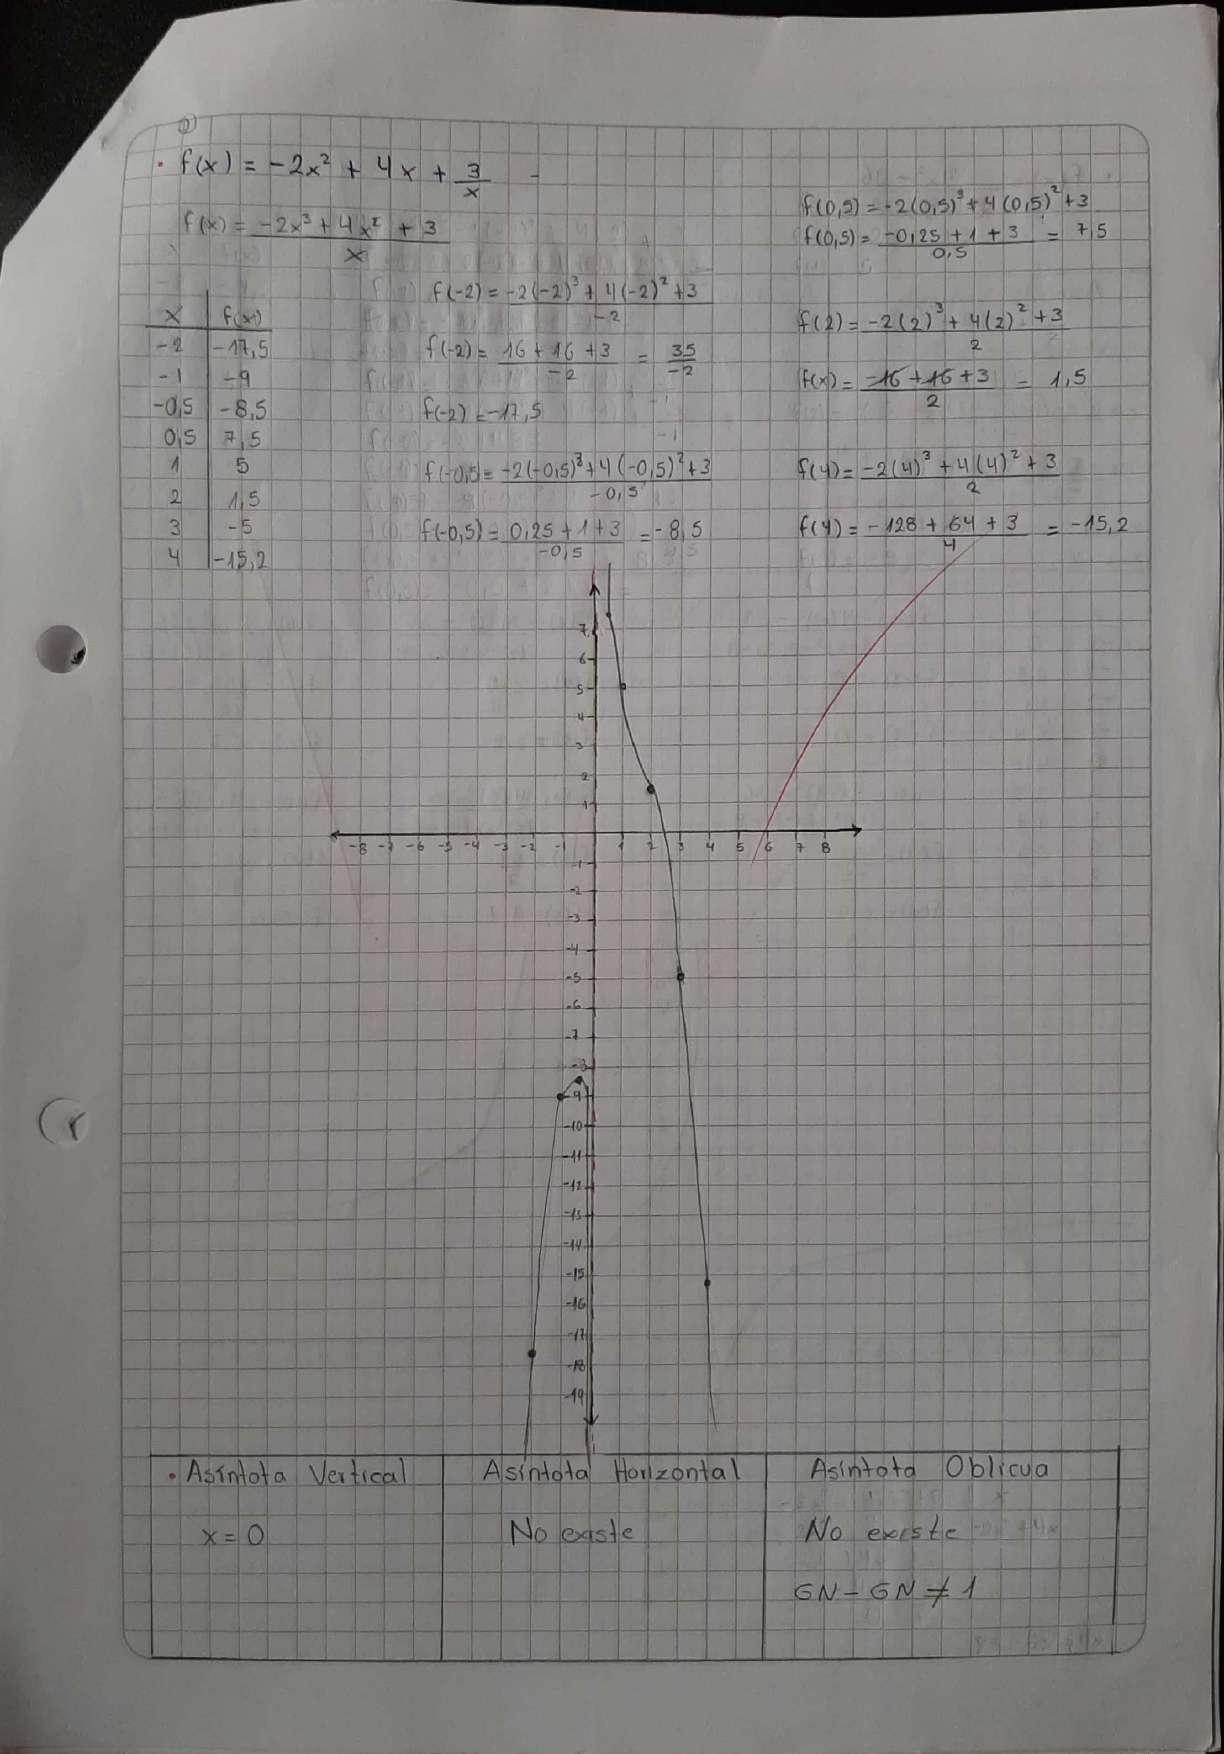 • f(x) = -2x² + 4x + 3/x
f(x) = (-2x³ + 4x² + 3)/x
x | f(x)
-2 | -17,5
-1 | -9
-0,5 | -8,5
0,5 | 7,5
1 | 5
2 | 1,5
3 | -5
4 | -15,2
f(-2) = (-2(-2)³ + 4(-2)² + 3)/-2
f(-2) = (16 + 16 + 3)/-2 = 35/-2
f(-2) = -17,5
f(-0,5) = (-2(-0,5)³ + 4(-0,5)² + 3)/-0,5
f(-0,5) = (0,25 + 1 + 3)/-0,5 = -8,5
f(0,5) = -2(0,5)³ + 4(0,5)² + 3
f(0,5) = (-0,25 + 1 + 3)/0,5 = 7,5
f(2) = (-2(2)³ + 4(2)² + 3)/2
f(x) = (-16 + 16 + 3)/2 = 1,5
f(4) = (-2(4)³ + 4(4)² + 3)/2
f(4) = (-128 + 64 + 3)/4 = -15,2
7
6
5
4
3
2
1
-8 -7 -6 -5 -4 -3 -2 -1 1 2 3 4 5 6 7 8
-1
-2
-3
-4
-5
-6
-7
-8
-9
-10
-11
-12
-13
-14
-15
-16
-17
-18
-19
• Asíntota Vertical
x = 0
Asíntota Horizontal
No existe
Asíntota Oblicua
No existe
GN - GN ≠ 1